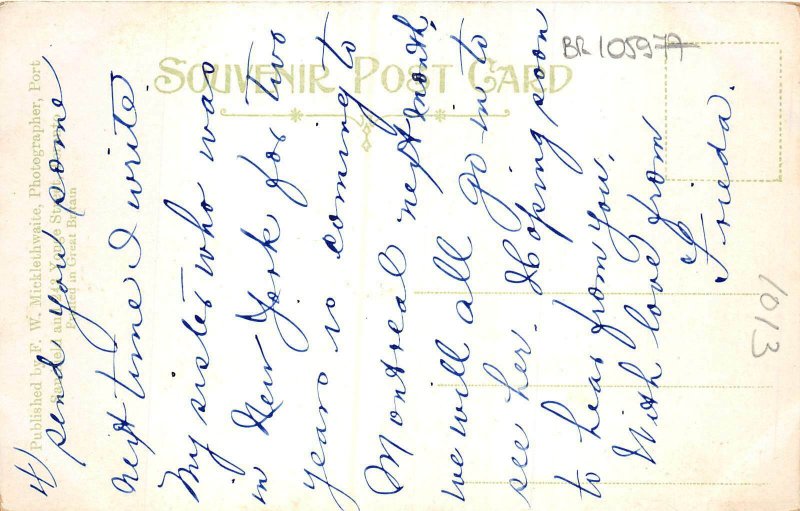 SOUVENIR POST CARD
Published by F. W. Micklethwaite, Photographer, Port
Sandfield and 243 Yonge Street, Toronto
Printed in Great Britain
BR 105977
1013
4/
send you some
next time I write
My sister who was
in New York for two
years is coming to
Montreal next month,
we will all go in to
see her. Hoping soon
to hear from you.
With love from
Frieda.